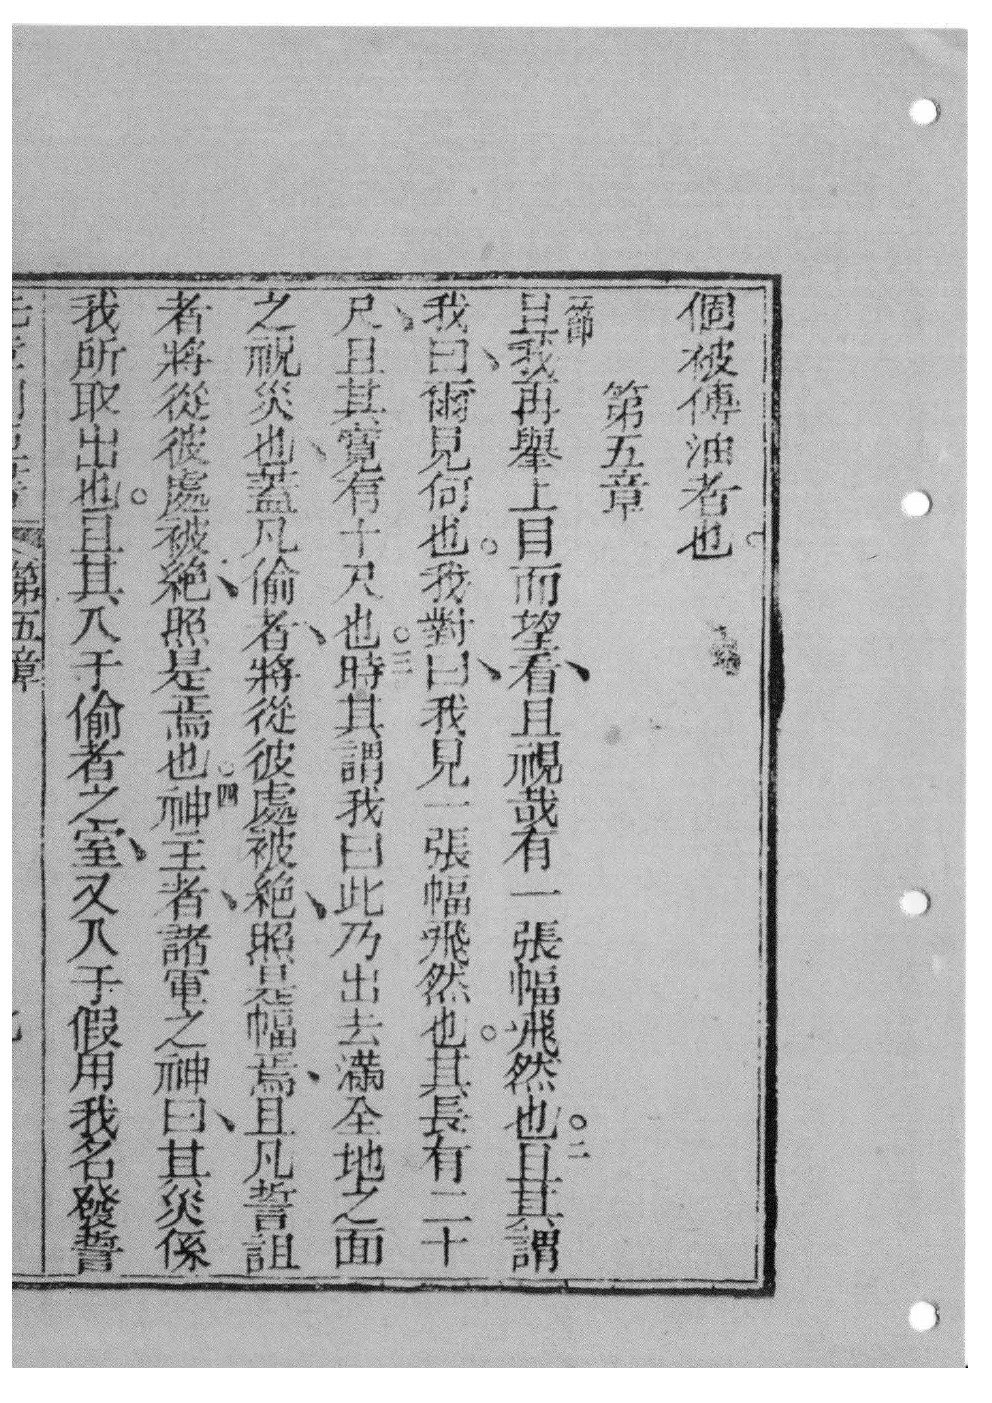 個被傅油者也。
第五章
一節且我再舉上目而望看、且視哉有一張幅飛然也。二且其謂
我曰、爾見何也。我對曰、我見一張幅飛然也。其長有二十
尺、且其寬有十尺也。三時其謂我曰此乃出去滿全地之面
之祝災也、蓋凡偷者、將從彼處被絕、照是幅焉、且凡誓詛
者將從彼處被絕、照是焉也。四神王者、諸軍之神曰、其災係
我所取出也。且其入于偷者之室、又入于假用我名發誓
第五章